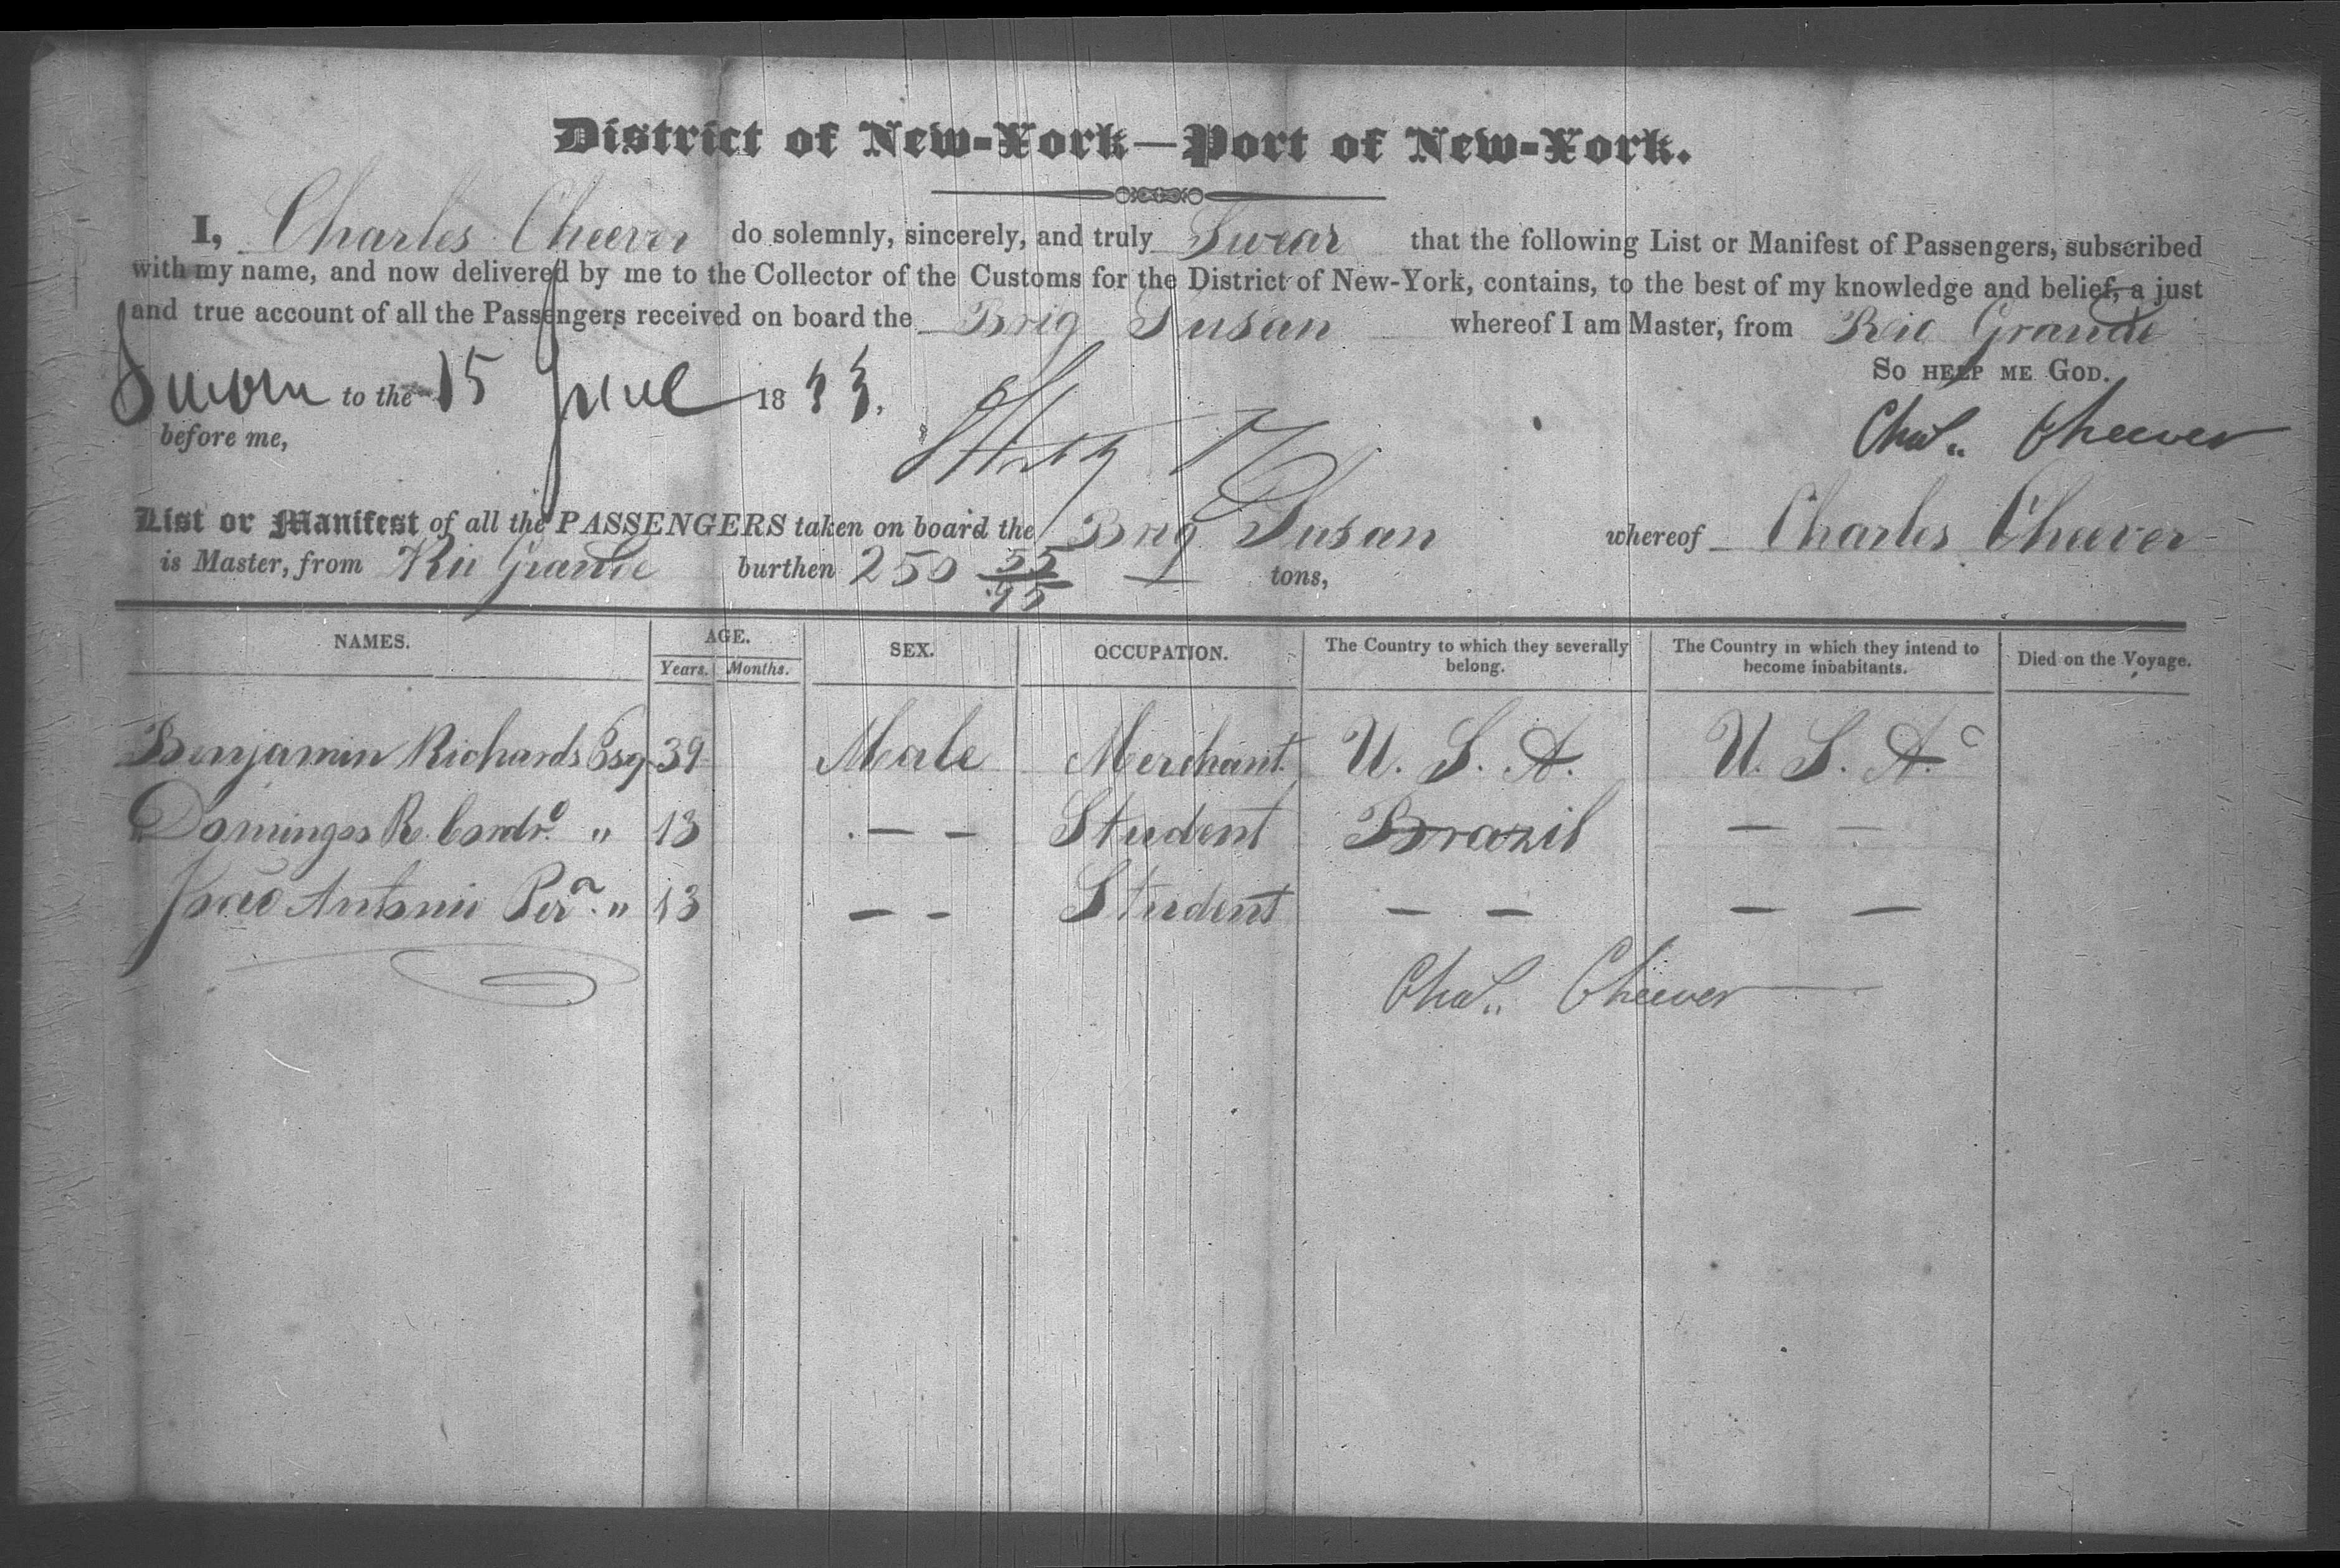 District of New-York—Port of New-York.
I, Charles Cheever do solemnly, sincerely, and truly Swear that the following List or Manifest of Passengers, subscribed
with my name, and now delivered by me to the Collector of the Customs for the District of New-York, contains, to the best of my knowledge and belief, a just
and true account of all the Passengers received on board the Brig Susan whereof I am Master, from Rio Grande
So help me God.
Sworn to the 15 June 1833,
before me,
Chas. Cheever
List or Manifest of all the PASSENGERS taken on board the Brig Susan whereof Charles Cheever
is Master, from Rio Grande burthen 250 55/95 tons,
NAMES. AGE. SEX. OCCUPATION. The Country to which they severally belong. The Country in which they intend to become inhabitants. Died on the Voyage.
Years. Months.
Benjamin Richards Esq. 39 Male Merchant. U. S. A. U. S. A.
Domingos R. " 13 — — Student Brazil — —
João Antonio Perª. " 13 — — Student — — — —
Chas. Cheever